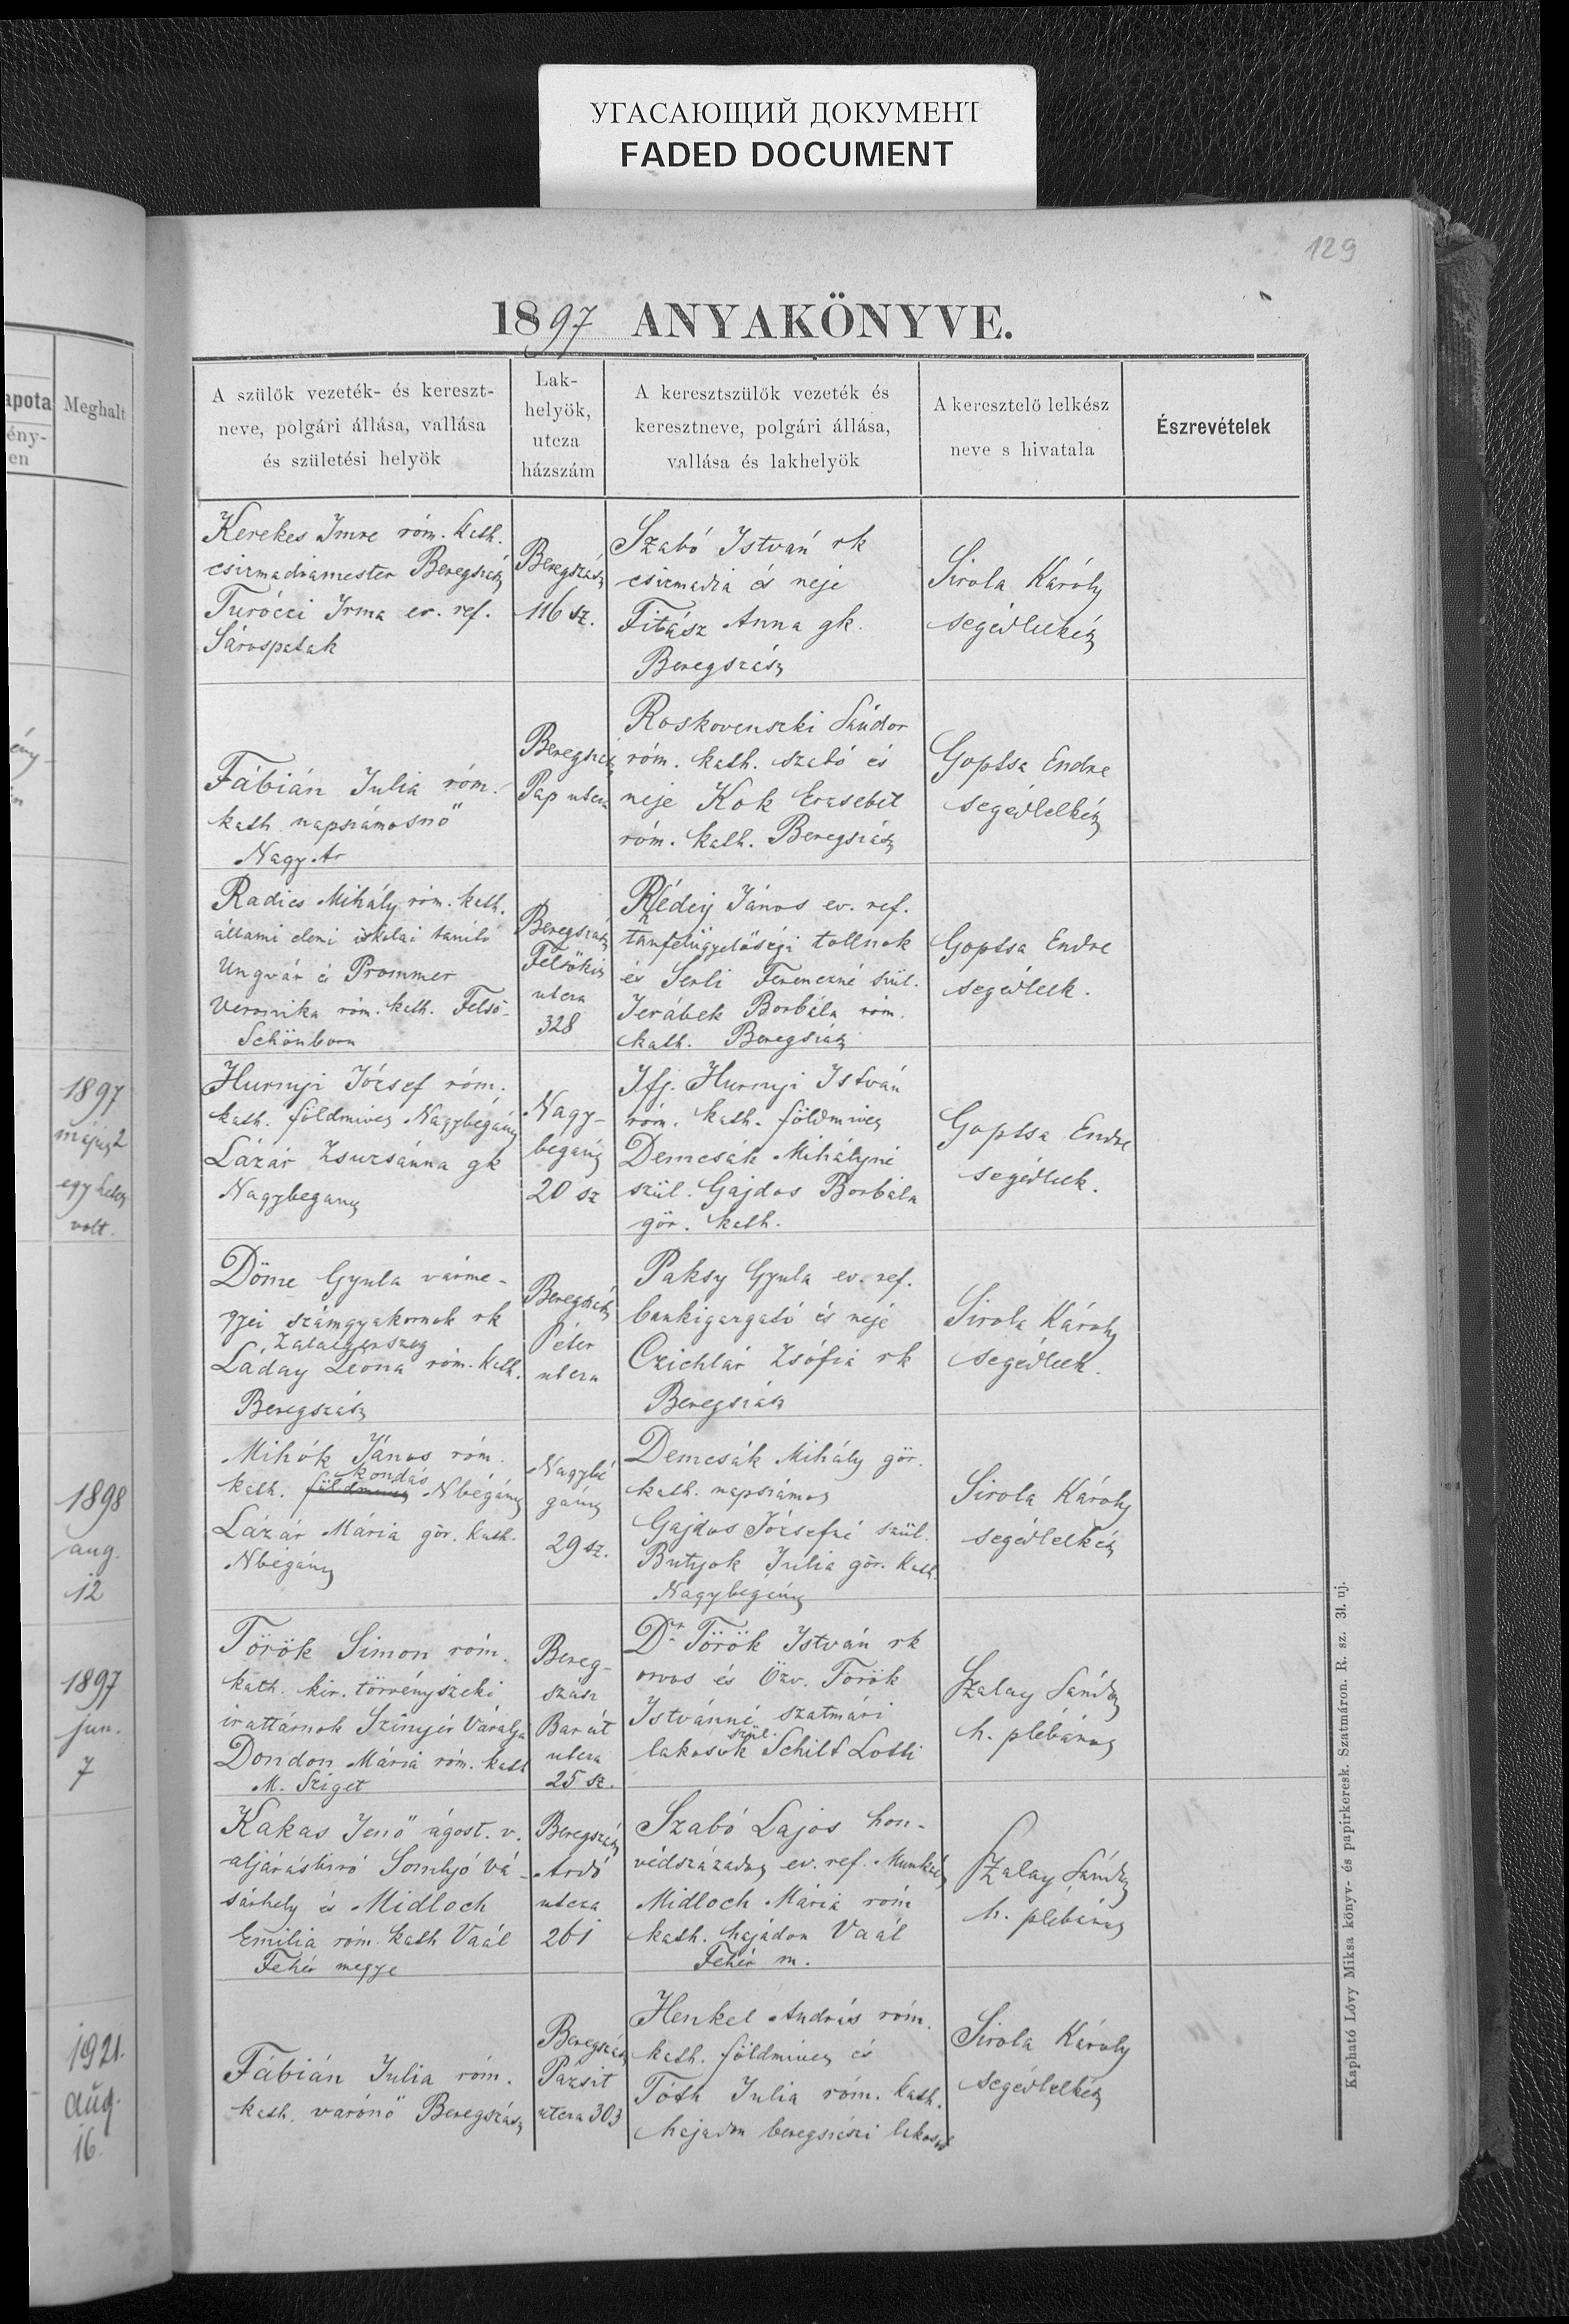 УГАСАЮЩИЙ ДОКУМЕНТ
FADED DOCUMENT
129
1897 ANYAKÖNYVE.
apota
ény-
en
Meghalt
A szülők vezeték- és kereszt-
neve, polgári állása, vallása
és születési helyök
Lak-
helyök,
utcza
házszám
A keresztszülők vezeték és
keresztneve, polgári állása,
vallása és lakhelyök
A keresztelő lelkész
neve s hivatala
Észrevételek
Kerekes Imre róm. kath.
csizmadiamester Beregszász
Turóczi Irma ev. ref.
Sárospatak
Beregszász
116 sz.
Szabó István rk
csizmadia és neje
Fitász Anna gk.
Beregszász
Sirola Károly
segédlelkész
Fábián Julia róm.
kath. napszámosnő
Nagy Ar
Beregszász
Pap utcza
Roskovenszki Sándor
róm. kath. szabó és
neje Kok Erzsebet
róm. kath. Beregszász
Goptsa Endre
segédlelkész
Radics Mihály róm. kath.
állami elemi iskolai tanító
Ungvár és Prommer
Veronika róm. kath. Felső-
Schönborn
Beregszász
Felsőkis
utcza
328
Rhédey János ev. ref.
tanfelügyelőségi tollnok
és Serli Ferenczné szül.
Jerábek Borbála róm.
kath. Beregszász
Goptsa Endre
segédlelk.
1897
május 2
egy hetes
volt.
Hurnyi József róm.
kath. földmives Nagybégány
Lázár Zsuzsánna gk
Nagybegany
Nagy-
begány
20 sz
Ifj. Hurnyi István
róm. kath. földmives
Demcsák Mihályné
szül. Gajdos Borbála
gör. kath.
Goptsa Endre
segédlelk.
Döme Gyula várme-
gyei számgyakornok rk
Zalaegerszeg
Láday Leona róm. kath.
Beregszász
Beregszász
Péter
utcza
Paksy Gyula ev. ref.
bankigazgató és neje
Czichlár Zsófia rk
Beregszász
Sirola Károly
segédlelk.
1898
aug.
12
Mihók János róm.
kondás
kath. földmives Nbégány
Lázár Mária gör. kath.
Nbégány
Nagybé
gány
29 sz.
Demcsák Mihály gör.
kath. napszámos
Gajdos Józsefné szül.
Butyok Julia gör. kath.
Nagybegány
Sirola Károly
segédlelkész
1897
jun.
7
Török Simon róm.
kath. kir. törvényszéki
irattárnok Szinyér Váralja
Dondon Mária róm. kath
M. Sziget
Bereg-
szász
Barát
utcza
25 sz.
Dr Török István rk
orvos és Özv. Török
Istvánné szatmári
szül.
lakosok Schilt Lotti
Szalay Sándor
h. plébános
Kakas Jenő ágost. v.
aljárásbiró Somlyó Vá-
sárhely és Midloch
Emilia róm. kath Vaál
Fehér megye
Beregszász
Ardó
utcza
261
Szabó Lajos hon-
védszázados ev. ref. Munkács
Midloch Mária róm
kath. hajadon Vaál
Fehér m.
Szalay Sándor
h. plébános
1921.
aug.
16.
Fábián Julia róm.
kath. varónő Beregszász
Beregszász
Pázsit
utcza 303
Henkel András róm.
kath. földmives és
Tóth Julia róm. kath.
hajadon beregszászi lakosok
Sirola Károly
segédlelkész
Kapható Lövy Miksa könyv- és papirkeresk. Szatmáron. R. sz. 31. uj.